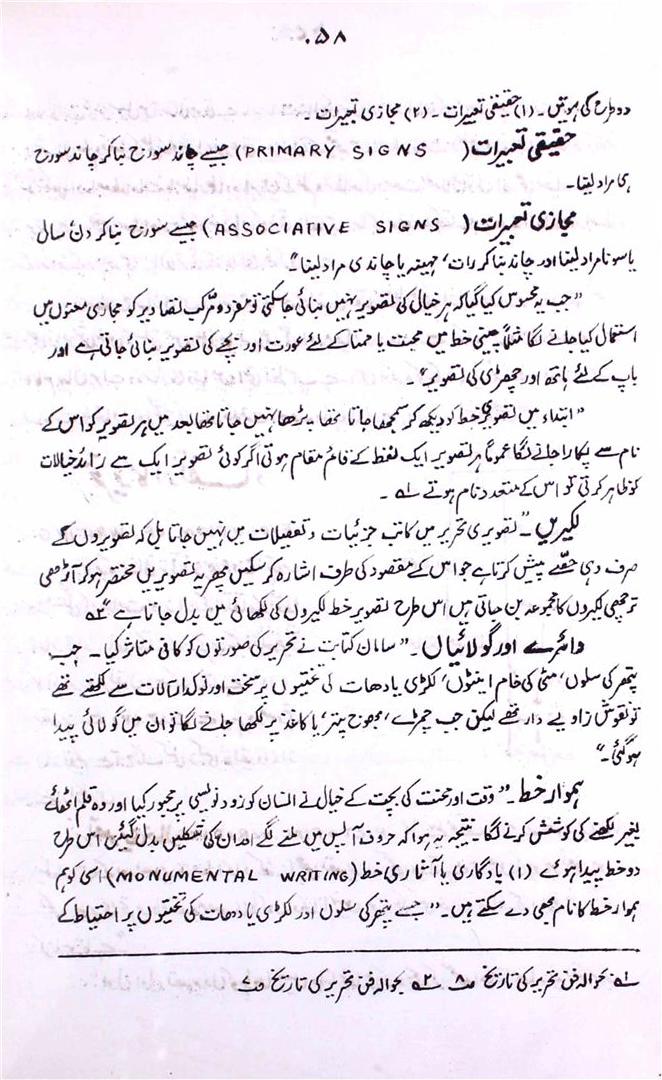 ۵۸
دو طرح کی ہوتیں۔ (۱) حقیقی تعبیرات۔ (۲) مجازی تعبیرات۔
حقیقی تعبیرات (PRIMARY SIGNS) جیسے چاند سورج بنا کر چاند سورج
ہی مراد لینا۔
مجازی تعبیرات (ASSOCIATIVE SIGNS) جیسے سورج بنا کر دن، سال
یا سونا مراد لینا اور چاند بنا کر رات، مہینہ یا چاندی مراد لینا"۔
"جب یہ محسوس کیا گیا کہ ہر خیال کی تصویر نہیں بنائی جا سکتی تو مفرد و مرکب تصاویر کو مجازی معنوں میں
استعمال کیا جانے لگا مثلاً چینی خط میں محبت یا ممتا کے لئے عورت اور بچے کی تصویر بنائی جاتی ہے اور
باپ کے لئے ہاتھ اور چھڑی کی تصویر"۔
"ابتداء میں تصویری خط کو دیکھ کر سمجھا جاتا تھا پڑھا نہیں جاتا تھا بعد میں ہر تصویر کو اس کے
نام سے پکارا جانے لگا عموماً ہر تصویر ایک لفظ کے قائم مقام ہوتی اگر کوئی تصویر ایک سے زائد خیالات
کو ظاہر کرتی تو اس کے متعدد نام ہوتے ۱؎۔
لکیریں۔ "تصویری تحریر میں کاتب جزئیات و تفصیلات میں نہیں جاتا بل کہ تصویروں کے
صرف وہی حصّے پیش کرتا ہے جو اس کے مقصود کی طرف اشارہ کر سکیں پھر یہ تصویریں مختصر ہو کر آڑھی
ترچھی لکیروں کا مجموعہ بن جاتی ہیں اس طرح تصویر خط لکیروں کی لکھائی میں بدل جاتا ہے" ۲؎
دائرے اور گولائیاں۔ "سامان کتابت نے تحریر کی صورتوں کو کافی متاثر کیا۔ جب
پتھر کی سلوں، مٹی کی خام اینٹوں، لکڑی یا دھات کی تختیوں پر سخت اور نوکدار آلات سے لکھتے تھے
تو نقوش زاویے دار تھے لیکن جب چمڑے، بھوج پتر، یا کاغذ پر لکھا جانے لگا تو ان میں گولائی پیدا
ہو گئی۔"
ہموار خط۔ "وقت اور محنت کی بچت کے خیال نے انسان کو زود نویسی پر مجبور کیا اور وہ قلم اٹھائے
بغیر لکھنے کی کوشش کرنے لگا۔ نتیجہ یہ ہوا کہ حروف آپس میں ملنے لگے اور ان کی شکلیں بدل گئیں اس طرح
دو خط پیدا ہوئے (۱) یادگاری یا آثاری خط (MONUMENTAL WRITING) اسی کو ہم
ہموار خط کا نام بھی دے سکتے ہیں۔ "جسے پتھر کی سلوں اور لکڑی یا دھات کی تختیوں پر احتیاط کے
۱؎ بحوالہ فن تحریر کی تاریخ ص ۸ ۲؎ بحوالہ فن تحریر کی تاریخ ص ۷